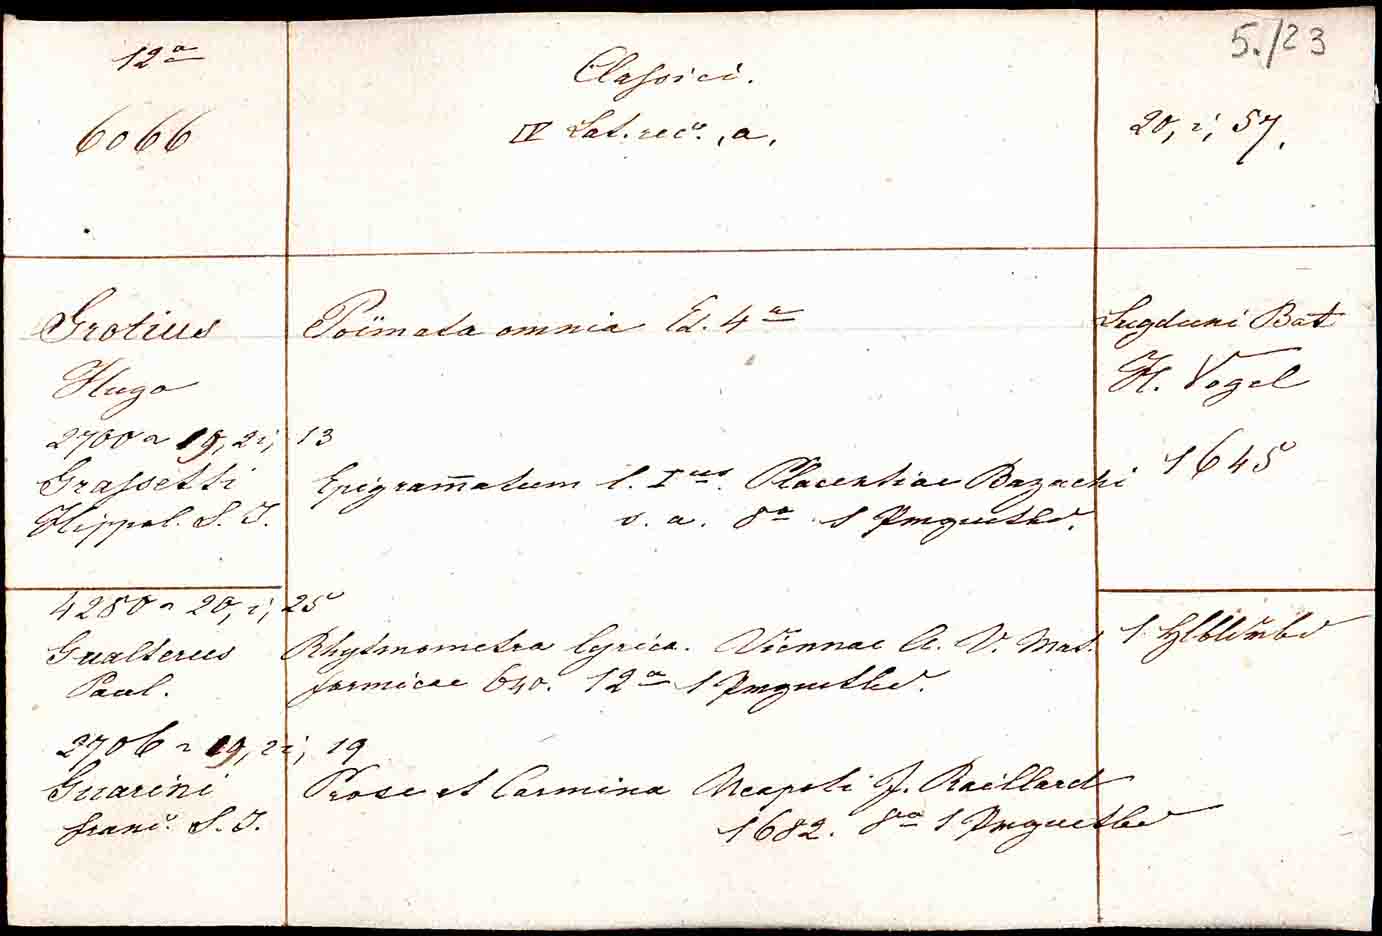 5./23
12a
Classici.
6066
IV Lat. rec. , a,
20, i, 57.
Grotius
Poëmata omnia Ed. 4a
Lugduni Bat
Hugo
H. Vogel
2700 a 19, 2i, 13
1645
Grassetti
Epigrammatum l. Ius. Placentiae Bazachi
Hippol. S. J.
s. a. 8a 1 Prngutbd.
4280 a 20, i, 25
Gualterus
Rhytmometra lyrica. Viennae A. V. Mat.
1 Hlbldrnbd
Paul.
formicae 640. 12a 1 Prngutbd.
2706 a 19, 2i, 19
Guarini
Prose et Carmina Neapoli J. Raillard
franc. S. J.
1682. 8a 1 Prngutbd